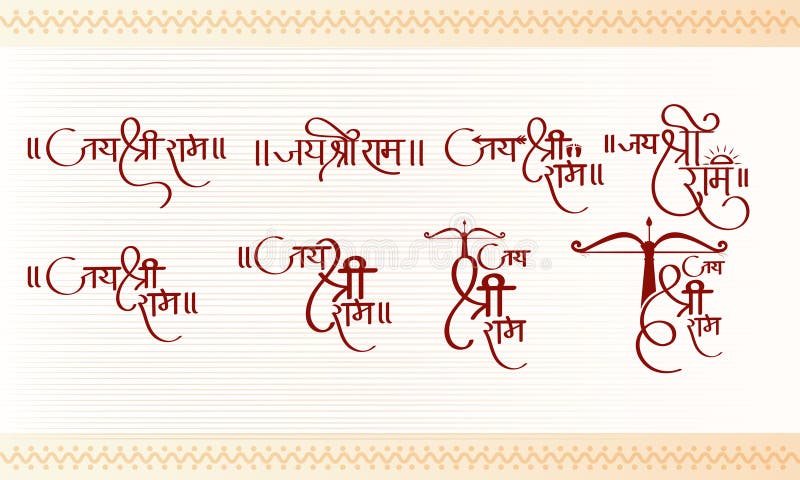 ॥ जय श्री राम ॥
॥ जय श्री राम ॥
जय श्री
राम ॥
॥ जय श्री
राम ॥
॥ जय श्री
राम ॥
॥ जय
श्री
राम ॥
जय
श्री
राम
जय
श्री
राम